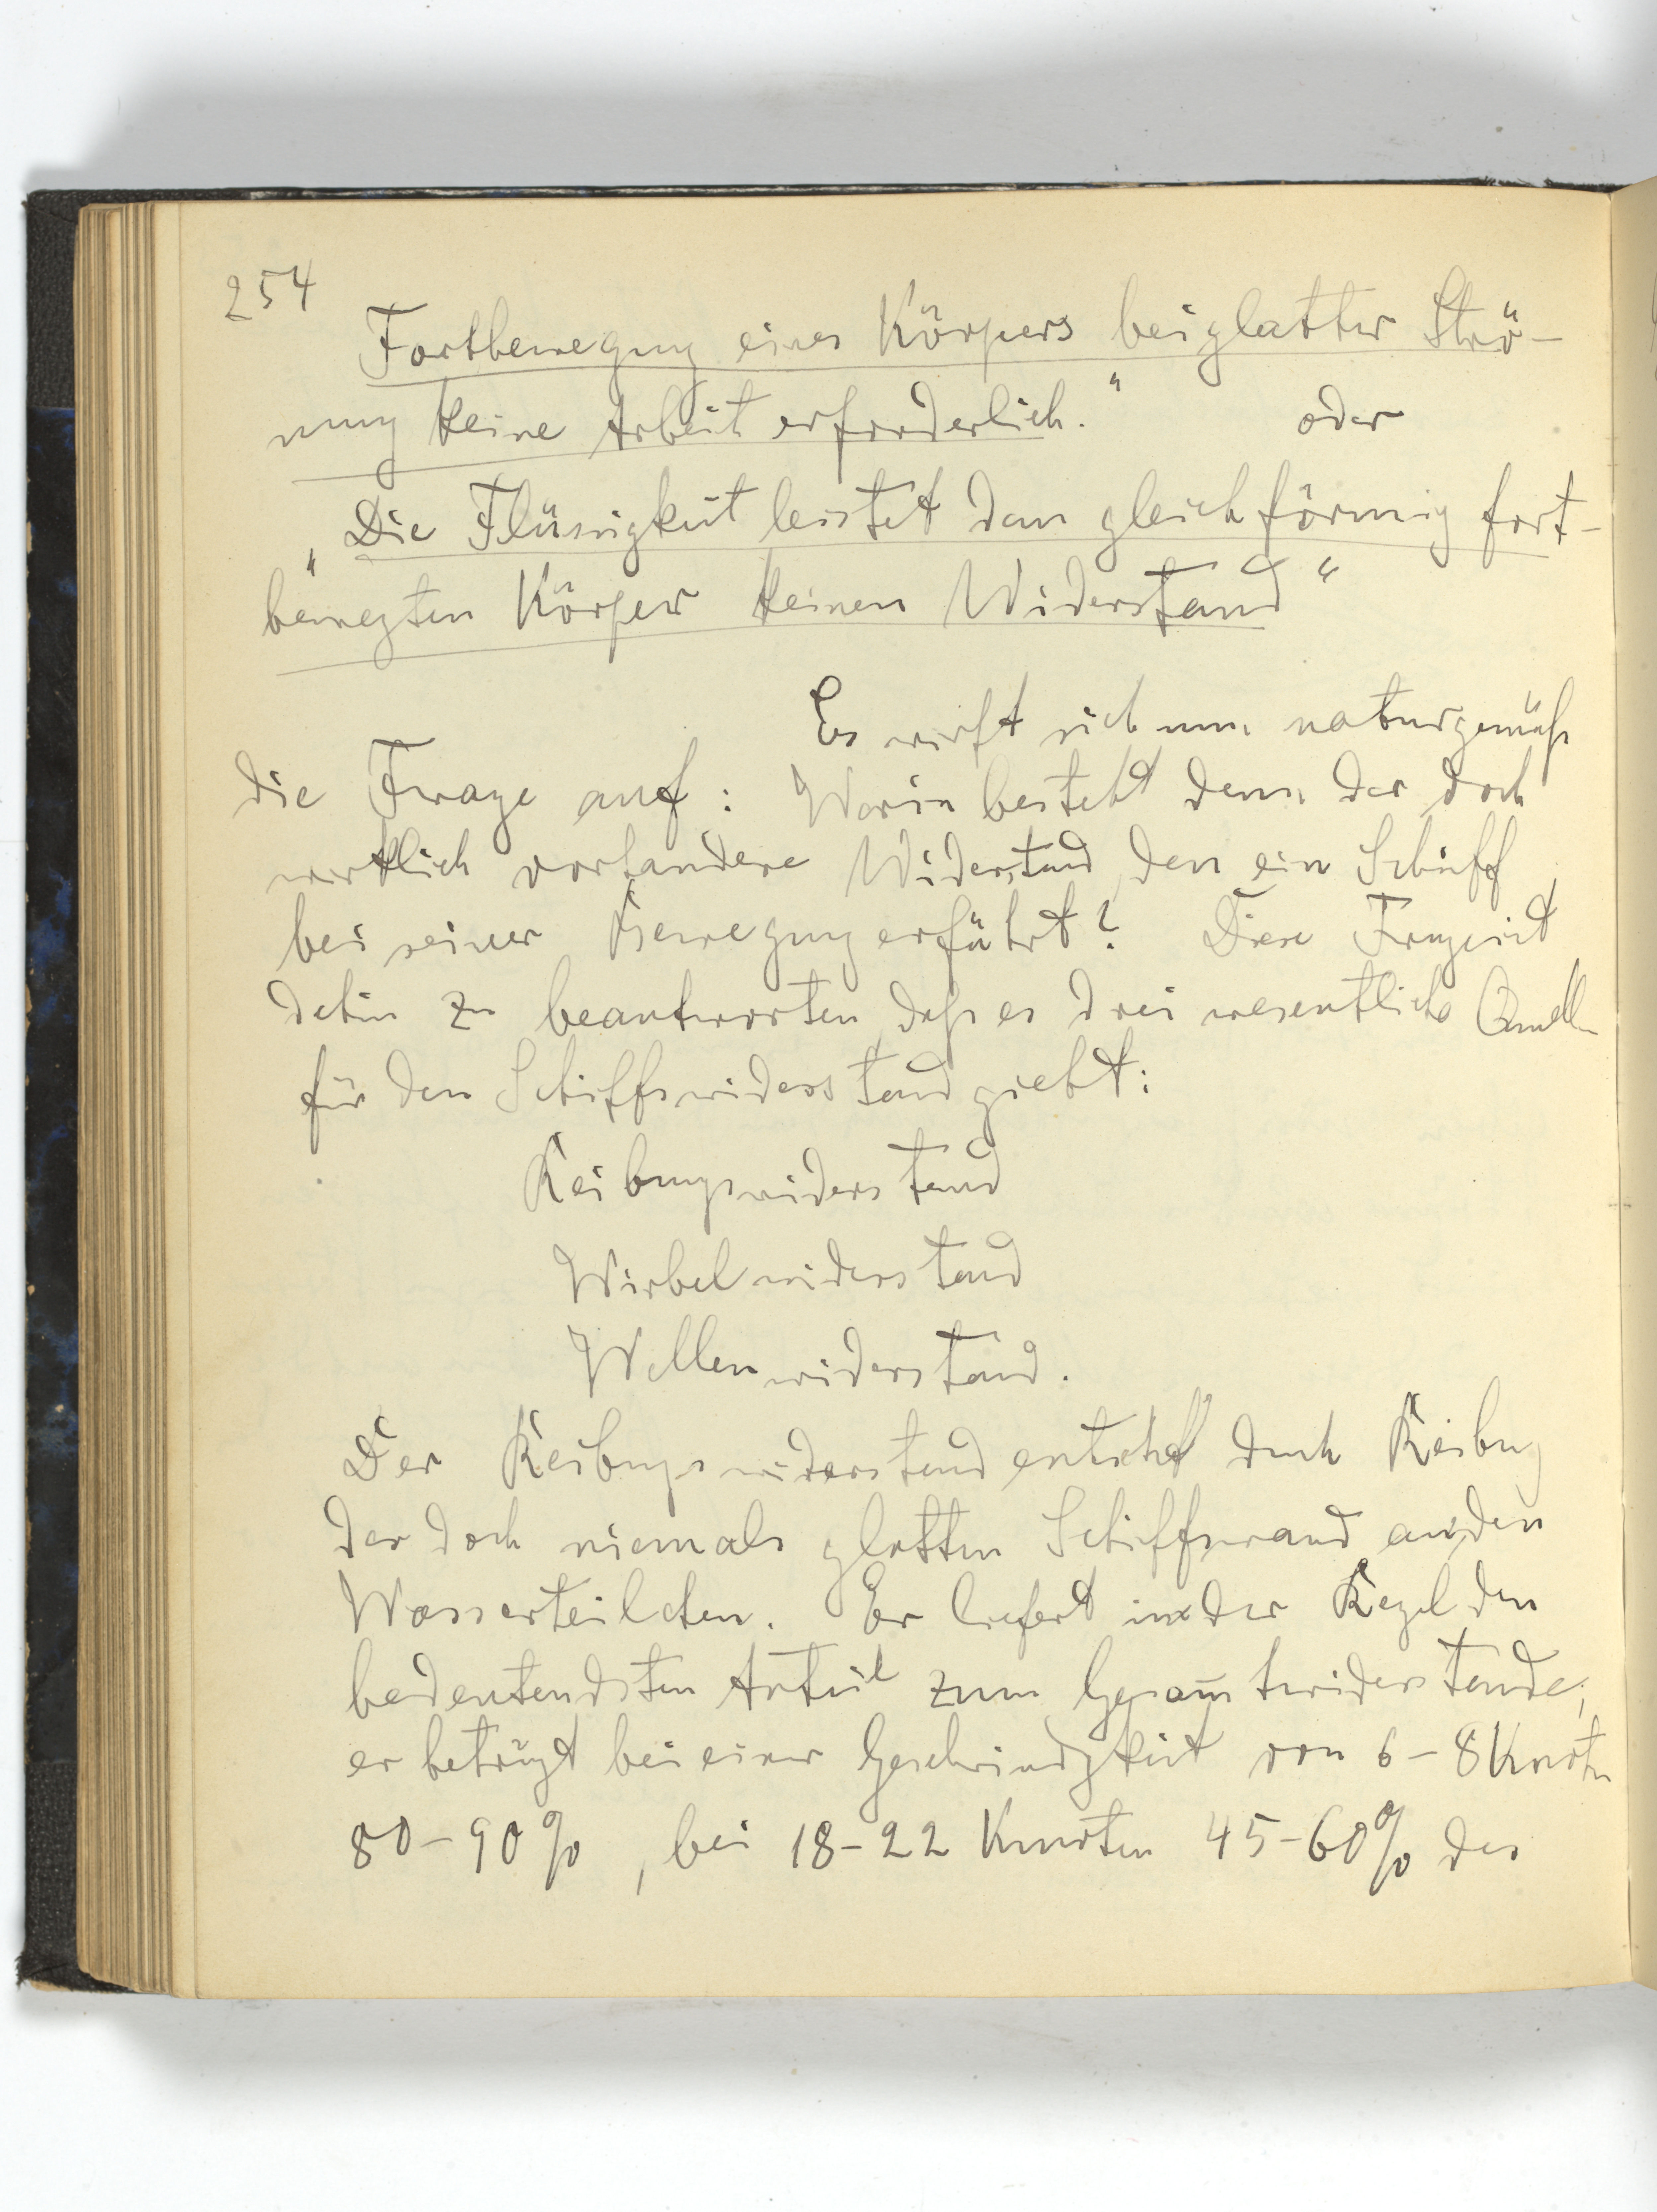 254
Fortbewegung eines Körpers bei glatter Strö-
mung keine Arbeit erforderlich." oder
„Die Flüssigkeit leistet dem gleichförmig fort-
bewegten Körper keinen Widerstand"
Es wirft sich nun naturgemäß
die Frage auf: Worin besteht denn der doch
wirklich vorhandene Widerstand, den ein Schiff
bei seiner Bewegung erfährt? Diese Frage ist
dahin zu beantworten, daß es drei wesentliche Quellen
für den Schiffswiderstand giebt:
Reibungswiderstand
Wirbelwiderstand
Wellenwiderstand.
Der Reibungswiderstand entsteht durch Reibung
der doch niemals glatten Schiffswand an den
Wasserteilchen. Er liefert in der Regel den
bedeutendsten Anteil zum Gesam̄twiderstande;
er beträgt bei einer Geschwindigkeit von 6-8 Knoten
80-90%, bei 18-22 Knoten 45-60% des